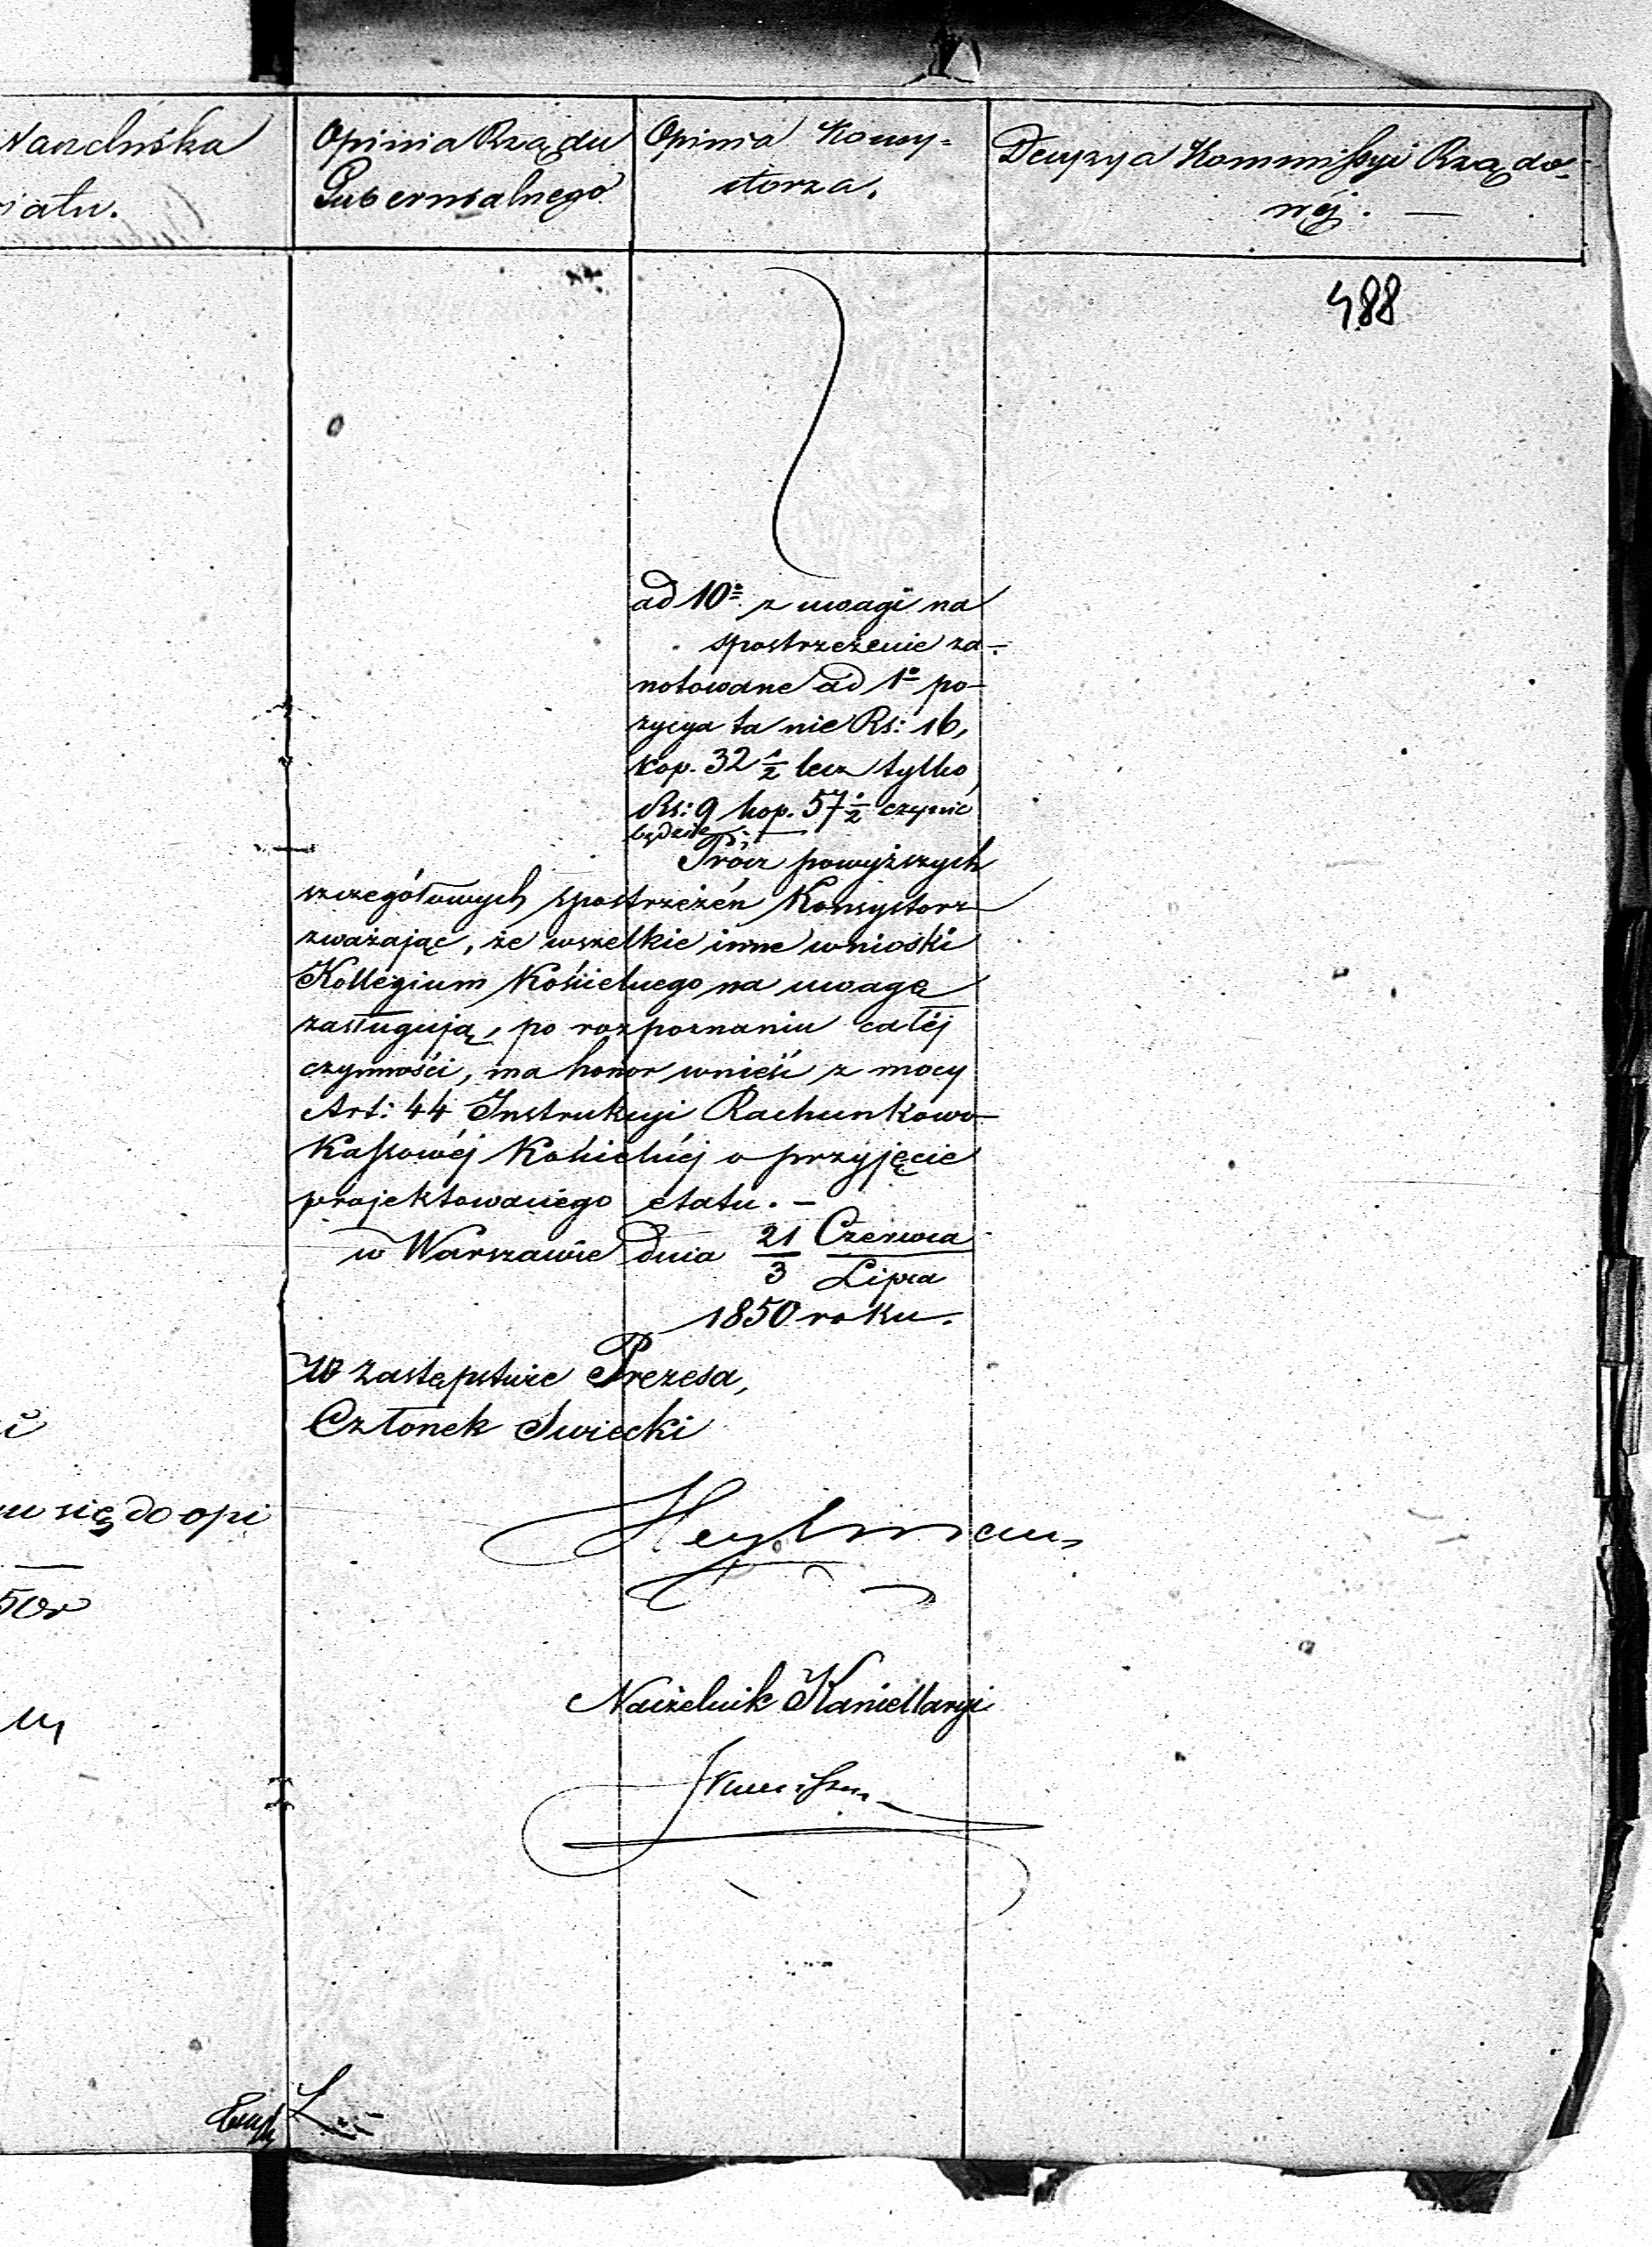 Naczelnika
iatu.
Opinia Rządu
Gubernialnego
Opinia Konsy-
storza.
Decyzya Kommissyi Rządo-
wéj. —
488
ad 10º z uwagi na
spostrzeżenie za-
notowane ad 1º po-
zycya ta nie Rs: 16,
kop. 32 1/2 lecz tylko
Rs: 9 kop. 57 1/2 czynić
będzie. —
Prócz powyższych
szczegółowych spostrzeżeń Konsystorz
zważając, że wszelkie inne wnioski
Kollegium Kościelnego na uwagę
zasługują, po rozpoznaniu całéj
czynności, ma honor wnieść z mocy
Art: 44 Instrukcyi Rachunkowo-
Kassowéj Kościelnéj o przyjęcie
projektowanego etatu. —
w Warszawie dnia 21 Czerwca
3 Lipca
1850 roku.
W zastępstwie Prezesa,
Członek Świecki
Heylman
m się do opi
50r
Naczelnik Kancellaryi